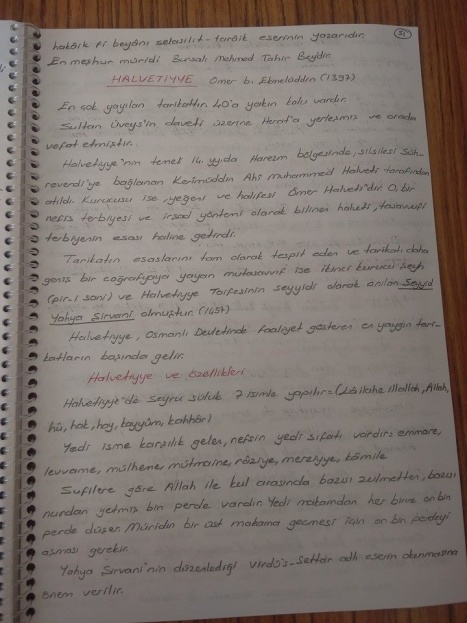 51
hakâik fi beyânı selasilit-tarâik eserinin yazarıdır.
En meşhur müridi Bursalı Mehmed Tahir Beydir.
HALVETİYYE Ömer b. Ekmelüddin (1397)
En çok yayılan tarikattır. 40'a yakın kolu vardır.
Sultan Üveys'in daveti üzerine Herat'a yerleşmiş ve orada
vefat etmiştir.
Halvetiyye'nin temeli 14. yyda Harezm bölgesinde, silsilesi Süh-
reverdi'ye bağlanan Kerimüddin Ahi Muhammed Halveti tarafından
atıldı. Kurucusu ise, yeğeni ve halifesi Ömer Halveti'dir. O, bir
nefis terbiyesi ve irşad yöntemi olarak bilinen halveti, tasavvufi
terbiyenin esası haline getirdi.
Tarikatın esaslarını tam olarak tespit eden ve tarikatı daha
geniş bir coğrafyaya yayan mutasavvıf ise ikinci kurucu şeyh
(pir-i sani) ve Halvetiyye Taifesinin seyyidi olarak anılan Seyyid
Yahya Şirvani olmuştur. (1457)
Halvetiyye, Osmanlı Devletinde faaliyet gösteren en yaygın tari-
katların başında gelir.
Halvetiyye ve özellikleri
Halvetiyye'de seyru süluk 7 isimle yapılır = (Lâ ilahe illallah, Allah,
hû, hak, hay, kayyûm, kahhâr)
Yedi isme karşılık gelen, nefsin yedi sıfatı vardır = emmare,
levvame, mülhene, mütmaine, râziye, merziyye, kâmile
Sufilere göre Allah ile kul arasında bazısı zulmetten, bazısı
nurdan yetmiş bin perde vardır. Yedi makamdan her birine on bin
perde düşer. Müridin bir üst makama geçmesi için on bin perdeyi
aşması gerekir.
Yahya Şirvani'nin düzenlediği Virdü's-Settar adlı eserin okunmasına
önem verilir.